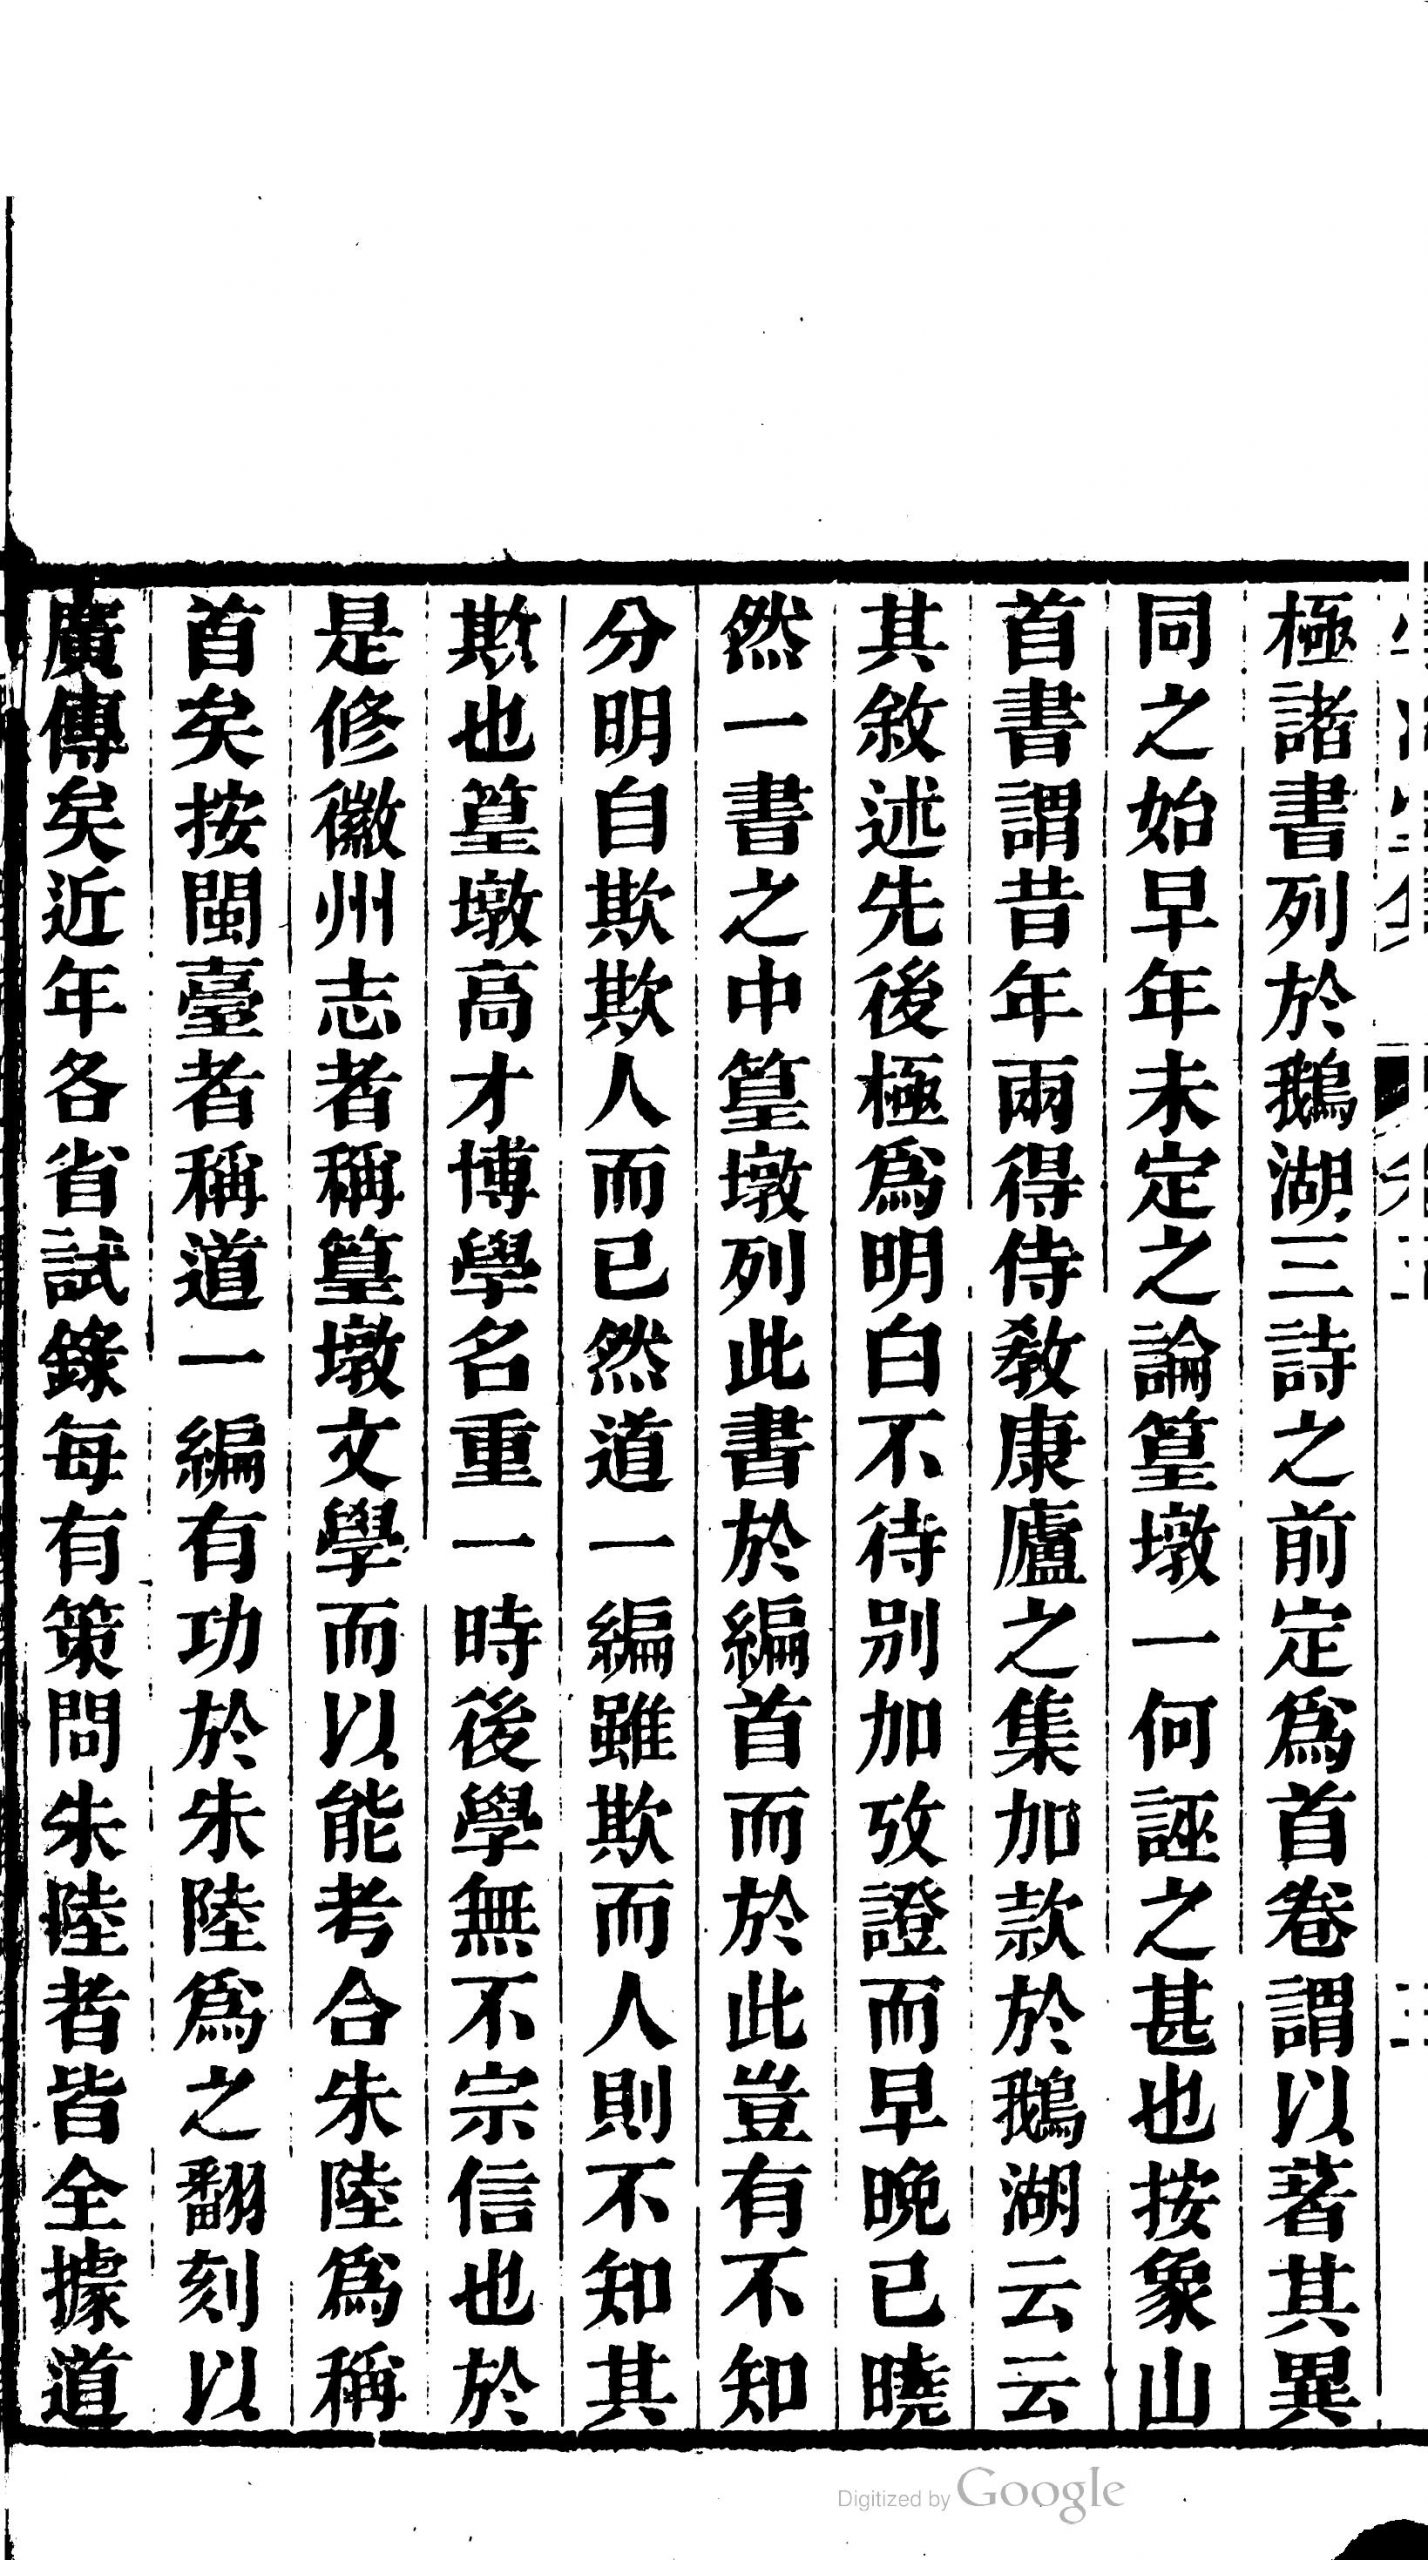 極諸書列於鵝湖三詩之前定爲首卷謂以著其異
同之始早年未定之論篁墩一何誣之甚也按象山
首書謂昔年兩得侍敎康廬之集加款於鵝湖云云
其敘述先後極爲明白不待别加攷證而早晚已曉
然一書之中篁墩列此書於編首而於此豈有不知
分明自欺欺人而已然道一編雖欺而人則不知其
欺也篁墩高才博學名重一時後學無不宗信也於
是修徽州志者稱篁墩文學而以能考合朱陸爲稱
首矣按閩臺者稱道一編有功於朱陸爲之翻刻以
廣傳矣近年各省試錄每有策問朱陸者皆全據道
Digitized by Google